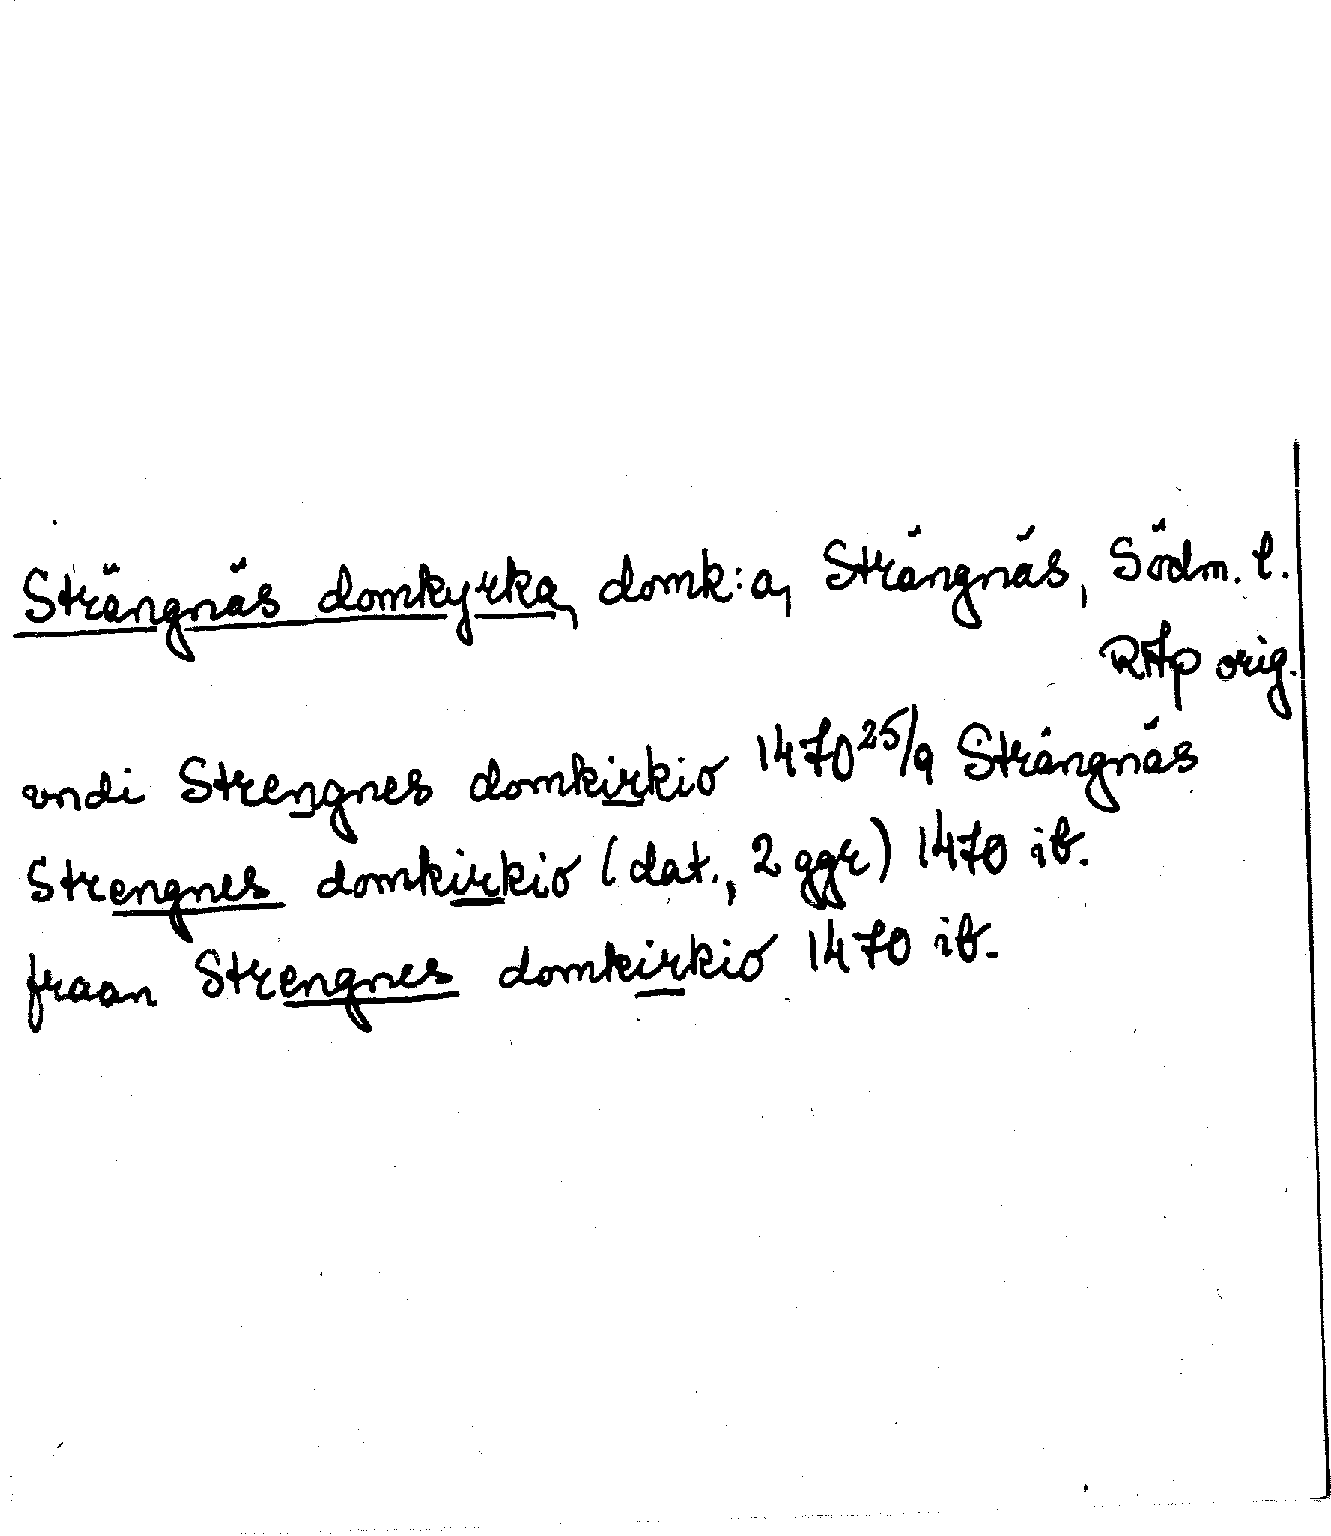 Strängnäs domkyrka, domk:a, Strängnäs, Södm. l.
RAp orig.
vndi Strengnes domkirkio 1470 25/9 Strängnäs
Strengnes domkirkio (dat., 2 ggr) 1470 ib.
fraan Strengnes domkirkio 1470 ib.